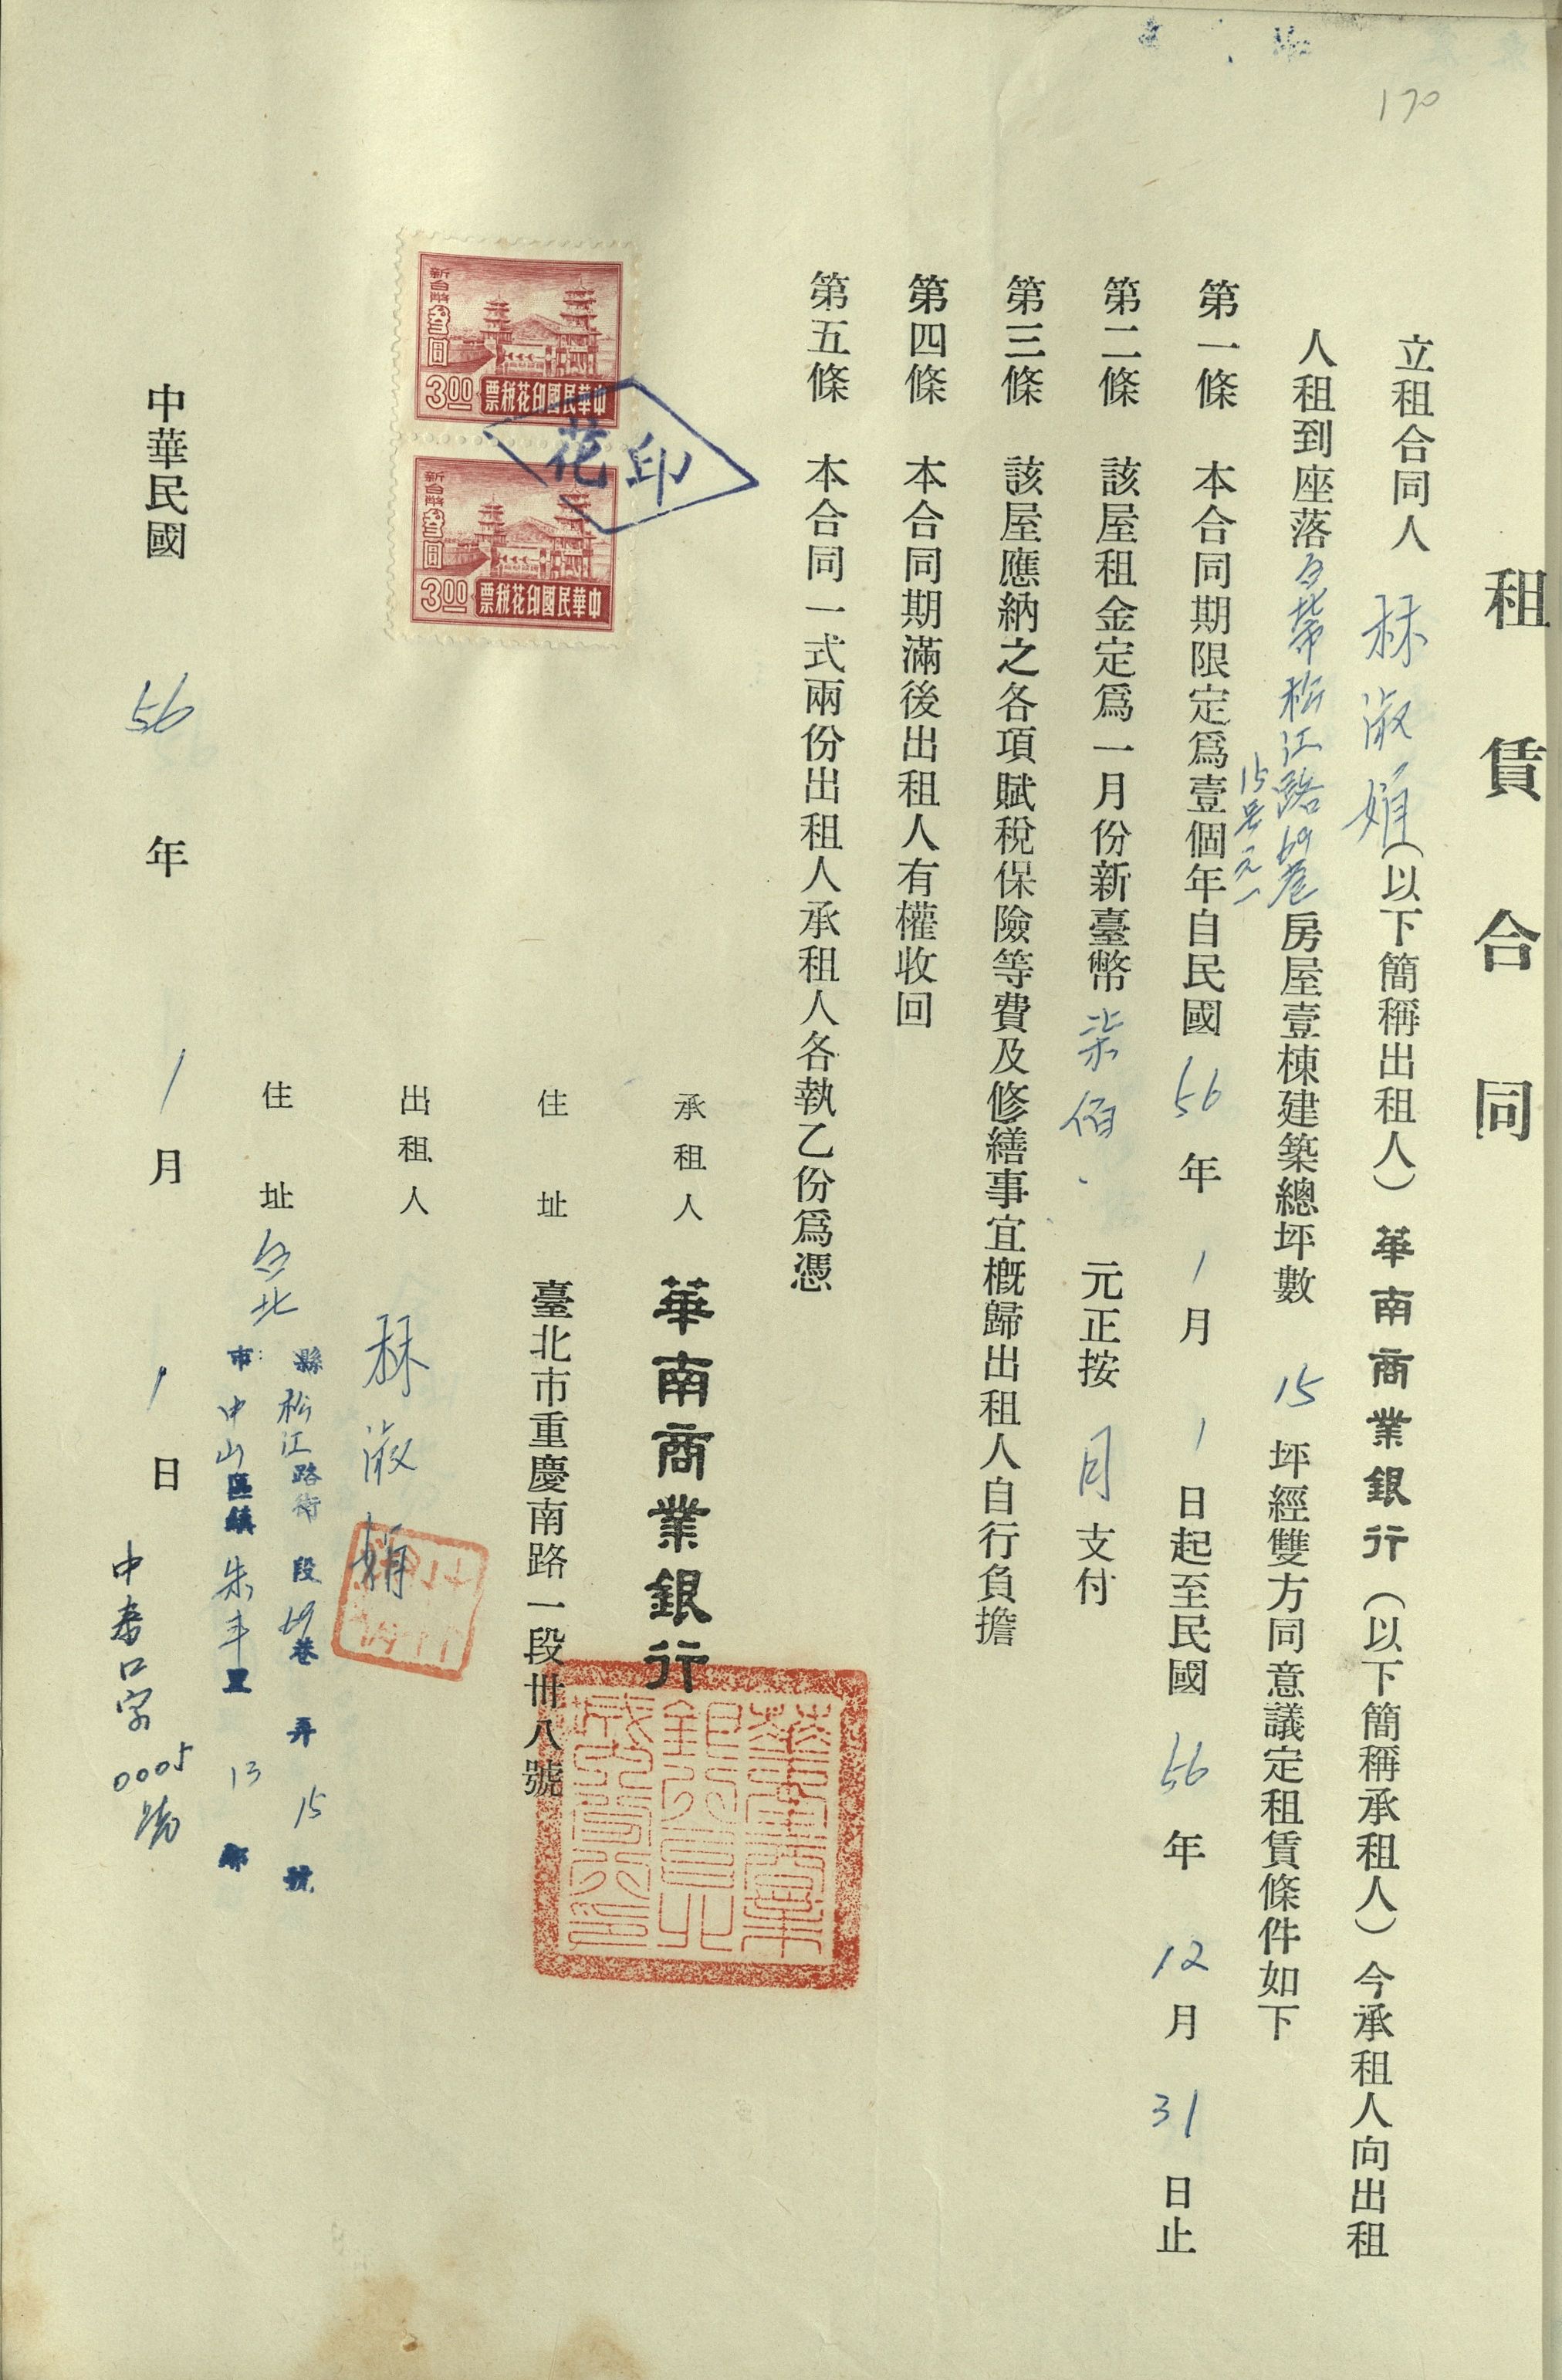 170
租賃合同
立租合同人 林淑娟(以下簡稱出租人)華南商業銀行(以下簡稱承租人)今承租人向出租
人租到座落台北市松江路69巷15号之一房屋壹棟建築總坪數 15 坪經雙方同意議定租賃條件如下
第一條 本合同期限定爲壹個年自民國 56 年 1 月 1 日起至民國 56 年 12 月 31 日止
第二條 該屋租金定爲一月份新臺幣 柒佰 元正按 月 支付
第三條 該屋應納之各項賦稅保險等費及修繕事宜概歸出租人自行負擔
第四條 本合同期滿後出租人有權收回
第五條 本合同一式兩份出租人承租人各執乙份爲憑
新台幣叁圓
3.00 中華民國印花稅票
新台幣叁圓
3.00 中華民國印花稅票
印花
承租人 華南商業銀行
住址 臺北市重慶南路一段卅八號
出租人 林淑娟
住址 台北
縣 松江路街 段 69巷 弄 15 號
市 中山區鎮 朱 里 13 鄰
中華民國 56 年 1 月 1 日
中 口字 0005 號